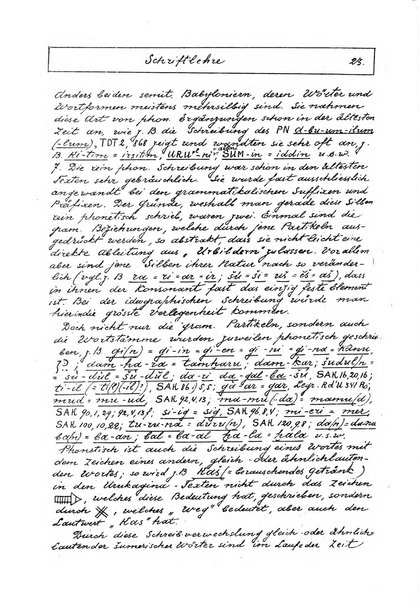 Schriftlehre 23.
Anders bei den semit. Babyloniern, deren Wörter und
Wortformen meistens mehrsilbig sind. Sie nahmen
diese Art von phon. Ergänzungen schon in der ältesten
Zeit an, wie z. B die Schreibung des PN d-bu-um-ilum
(-lum), TDT 2, 868 zeigt und wandten sie sehr oft an. z.
B. Ki-tim = irsitim, URU-ni = SUM-in = iddin u.s.w.
7. Die rein phon. Schreibung war schon in den ältesten
Texten sehr gebräuchlich. Sie wurde fast ausschliesslich
angewandt bei den grammatikalischen Suffixen und
Präfixen. Der Gründe, weshalb man gerade diese Silben
rein phonetisch schrieb, waren zwei: Einmal sind die
gram. Beziehungen, welche durch jene Partikeln aus-
gedrückt werden, so abstrakt, dass sie nicht leicht eine
direkte Ableitung aus „Urbildern" zulassen. Vor allem
aber sind jene Silben ihrer Natur nach so veränder-
lich (vgl. z. B ra = ri = ar = ir; šú = ši = uš = iš = aš), dass
in ihnen der Konsonant fast das einzig feste Element
ist. Bei der ideographischen Schreibung würde man
hierin die grösste Verlegenheit kommen.
Doch nicht nur die gram. Partikeln, sondern auch
die Wortstämme wurden zuweilen phonetisch geschrie-
ben, z. B gi(n) = gi-in = gi-en = gi-ni = gi-na = kânu,
dam-ha-ra = tamharu; dam-kar;
SAK 16, 20, 16;
ti-il (= ti(l)(-il)?), SAK 16 5, 5; gá-ar = gar,
mud = mu-ud, SAK 92, 4, 13; ma-mu(-da) = mamu(d),
SAK 90, 1, 29; 92, 4, 13; si-ig = sig, SAK 96, 8, 4; mi-ir = mer,
SAK 100, 10, 22; SAK 120, 98;
ba(n) = ba-an; bal = ba-al ha-la = hala u.s.w.
Phonetisch ist auch die Schreibung eines Wortes mit
dem Zeichen eines andern, gleich- oder ähnlichlauten-
den Wortes; so wird z. B Kaš (= berauschendes Getränk)
in den Urukagina-Texten nicht durch das Zeichen
, welches diese Bedeutung hat, geschrieben, sondern
durch , welches „Weg" bedeutet, aber auch den
Lautwert „Kas" hat.
Durch diese Schreibverwechslung gleich- oder ähnlich-
lautender sumerischer Wörter sind im Laufe der Zeit